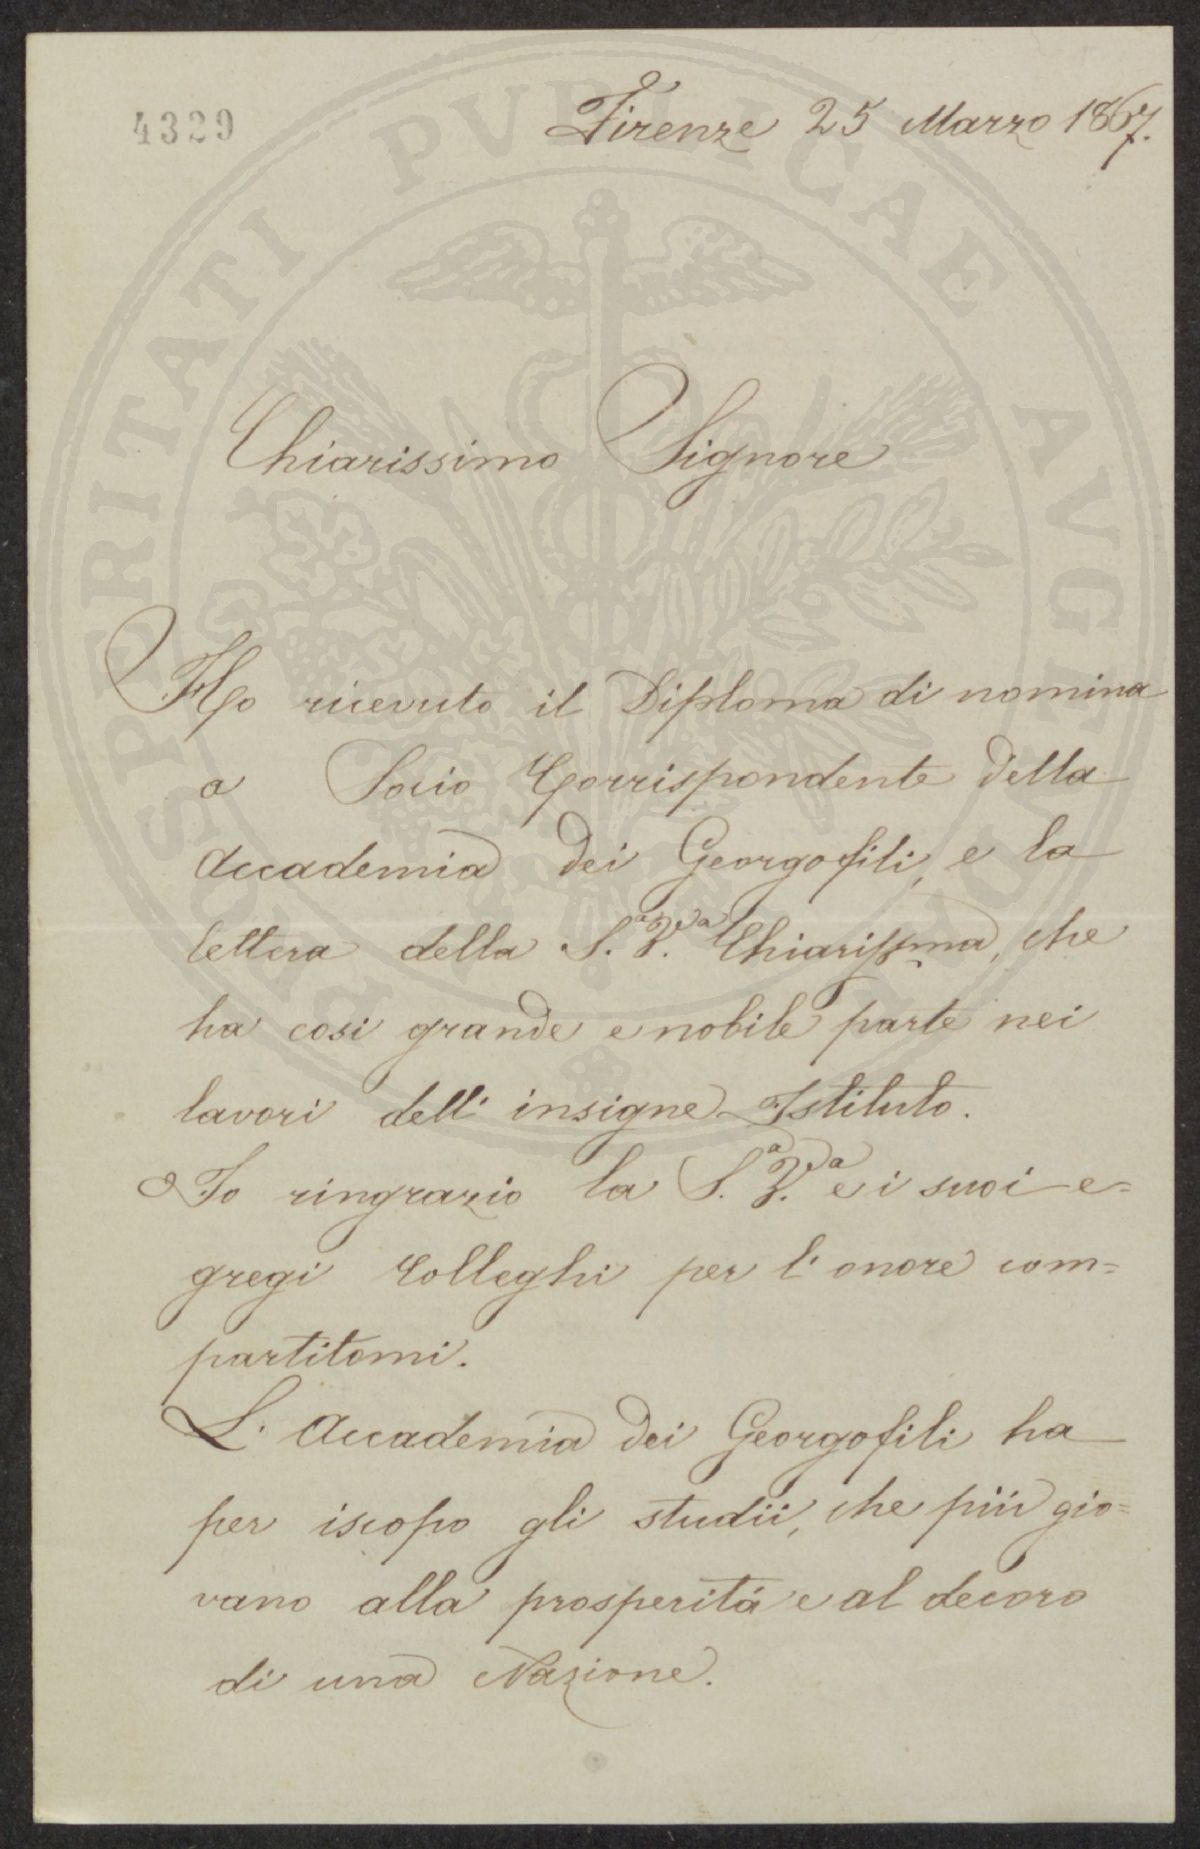 4329
Firenze 25 Marzo 1867.
PROSPERITATI PVBLICAE AVGENDAE
Chiarissimo Signore
Ho ricevuto il Diploma di nomina
a Socio Corrispondente della
Accademia dei Georgofili, e la
lettera della S.a V.a Chiarissma, che
ha cosi grande e nobile parte nei
lavori dell' insigne Istituto.
Io ringrazio la S.a V.a e i suoi e=
gregi Colleghi per l' onore com=
partitomi.
L' Accademia dei Georgofili ha
per iscopo gli studii, che più gio=
vano alla prosperitá e al decoro
di una Nazione.